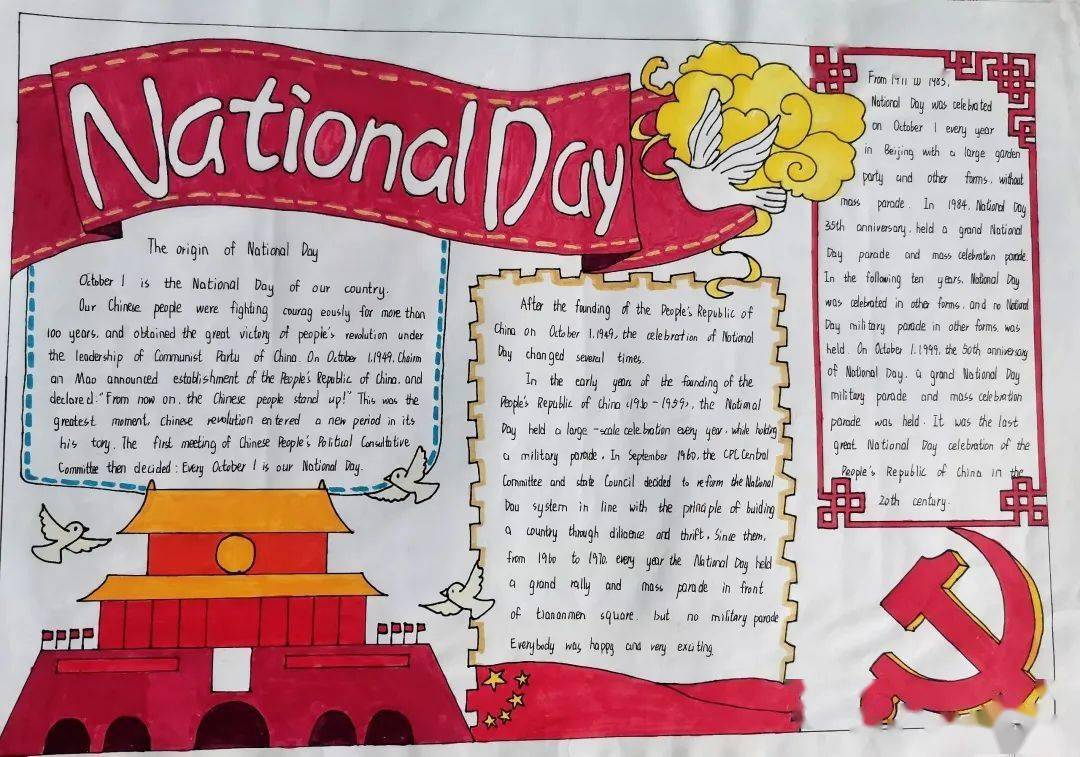 National Day
The origin of National Day
October 1 is the National Day of our country.
Our Chinese people were fighting courag eously for more than
100 years, and obtained the great victory of people's revolution under
the leadership of Communist Partu of China. On October 1.1949, Chairm
an Mao announced establishment of the People's Republic of China, and
declared: "From now on, the Chinese people stand up!" This was the
greatest moment, Chinese revolution entered a new period in its
his tory. The first meeting of Chinese People's Political Consultative
Committee then decided: Every October 1 is our National Day.
After the founding of the People's Republic of
China on October 1.1949, the celebration of National
Day changed several times.
In the early years of the founding of the
People's Republic of China <1950-1959>, the National
Day held a large-scale celebration every year, while holding
a military parade. In September 1960, the CPC Central
Committee and state Council decided to reform the National
Dau system in line with the principle of buiding
a country through diliaence and thrift. Since them,
from 1960 to 1970, every year the National Day held
a grand rally and mass parade in front
of tiananmen square. but no military parade
Everybody was happy and very exciting.
From 1911 to 1985,
National Day was celebrated
on October 1 every year
in Beijing with a large garden
party and other forms, without
mass parade. In 1984, National Day
35th anniversary, held a grand National
Day parade and mass celebration parade.
In the following ten years, National Day
was celebrated in other forms, and no National
Day military parade in other forms, was
held. On October 1.1999, the 50th anniversary
of National Day, a grand National Day
military parade and mass celebration
parade was held. It was the last
great National Day celebration of the
People's Republic of China in the
20th century.